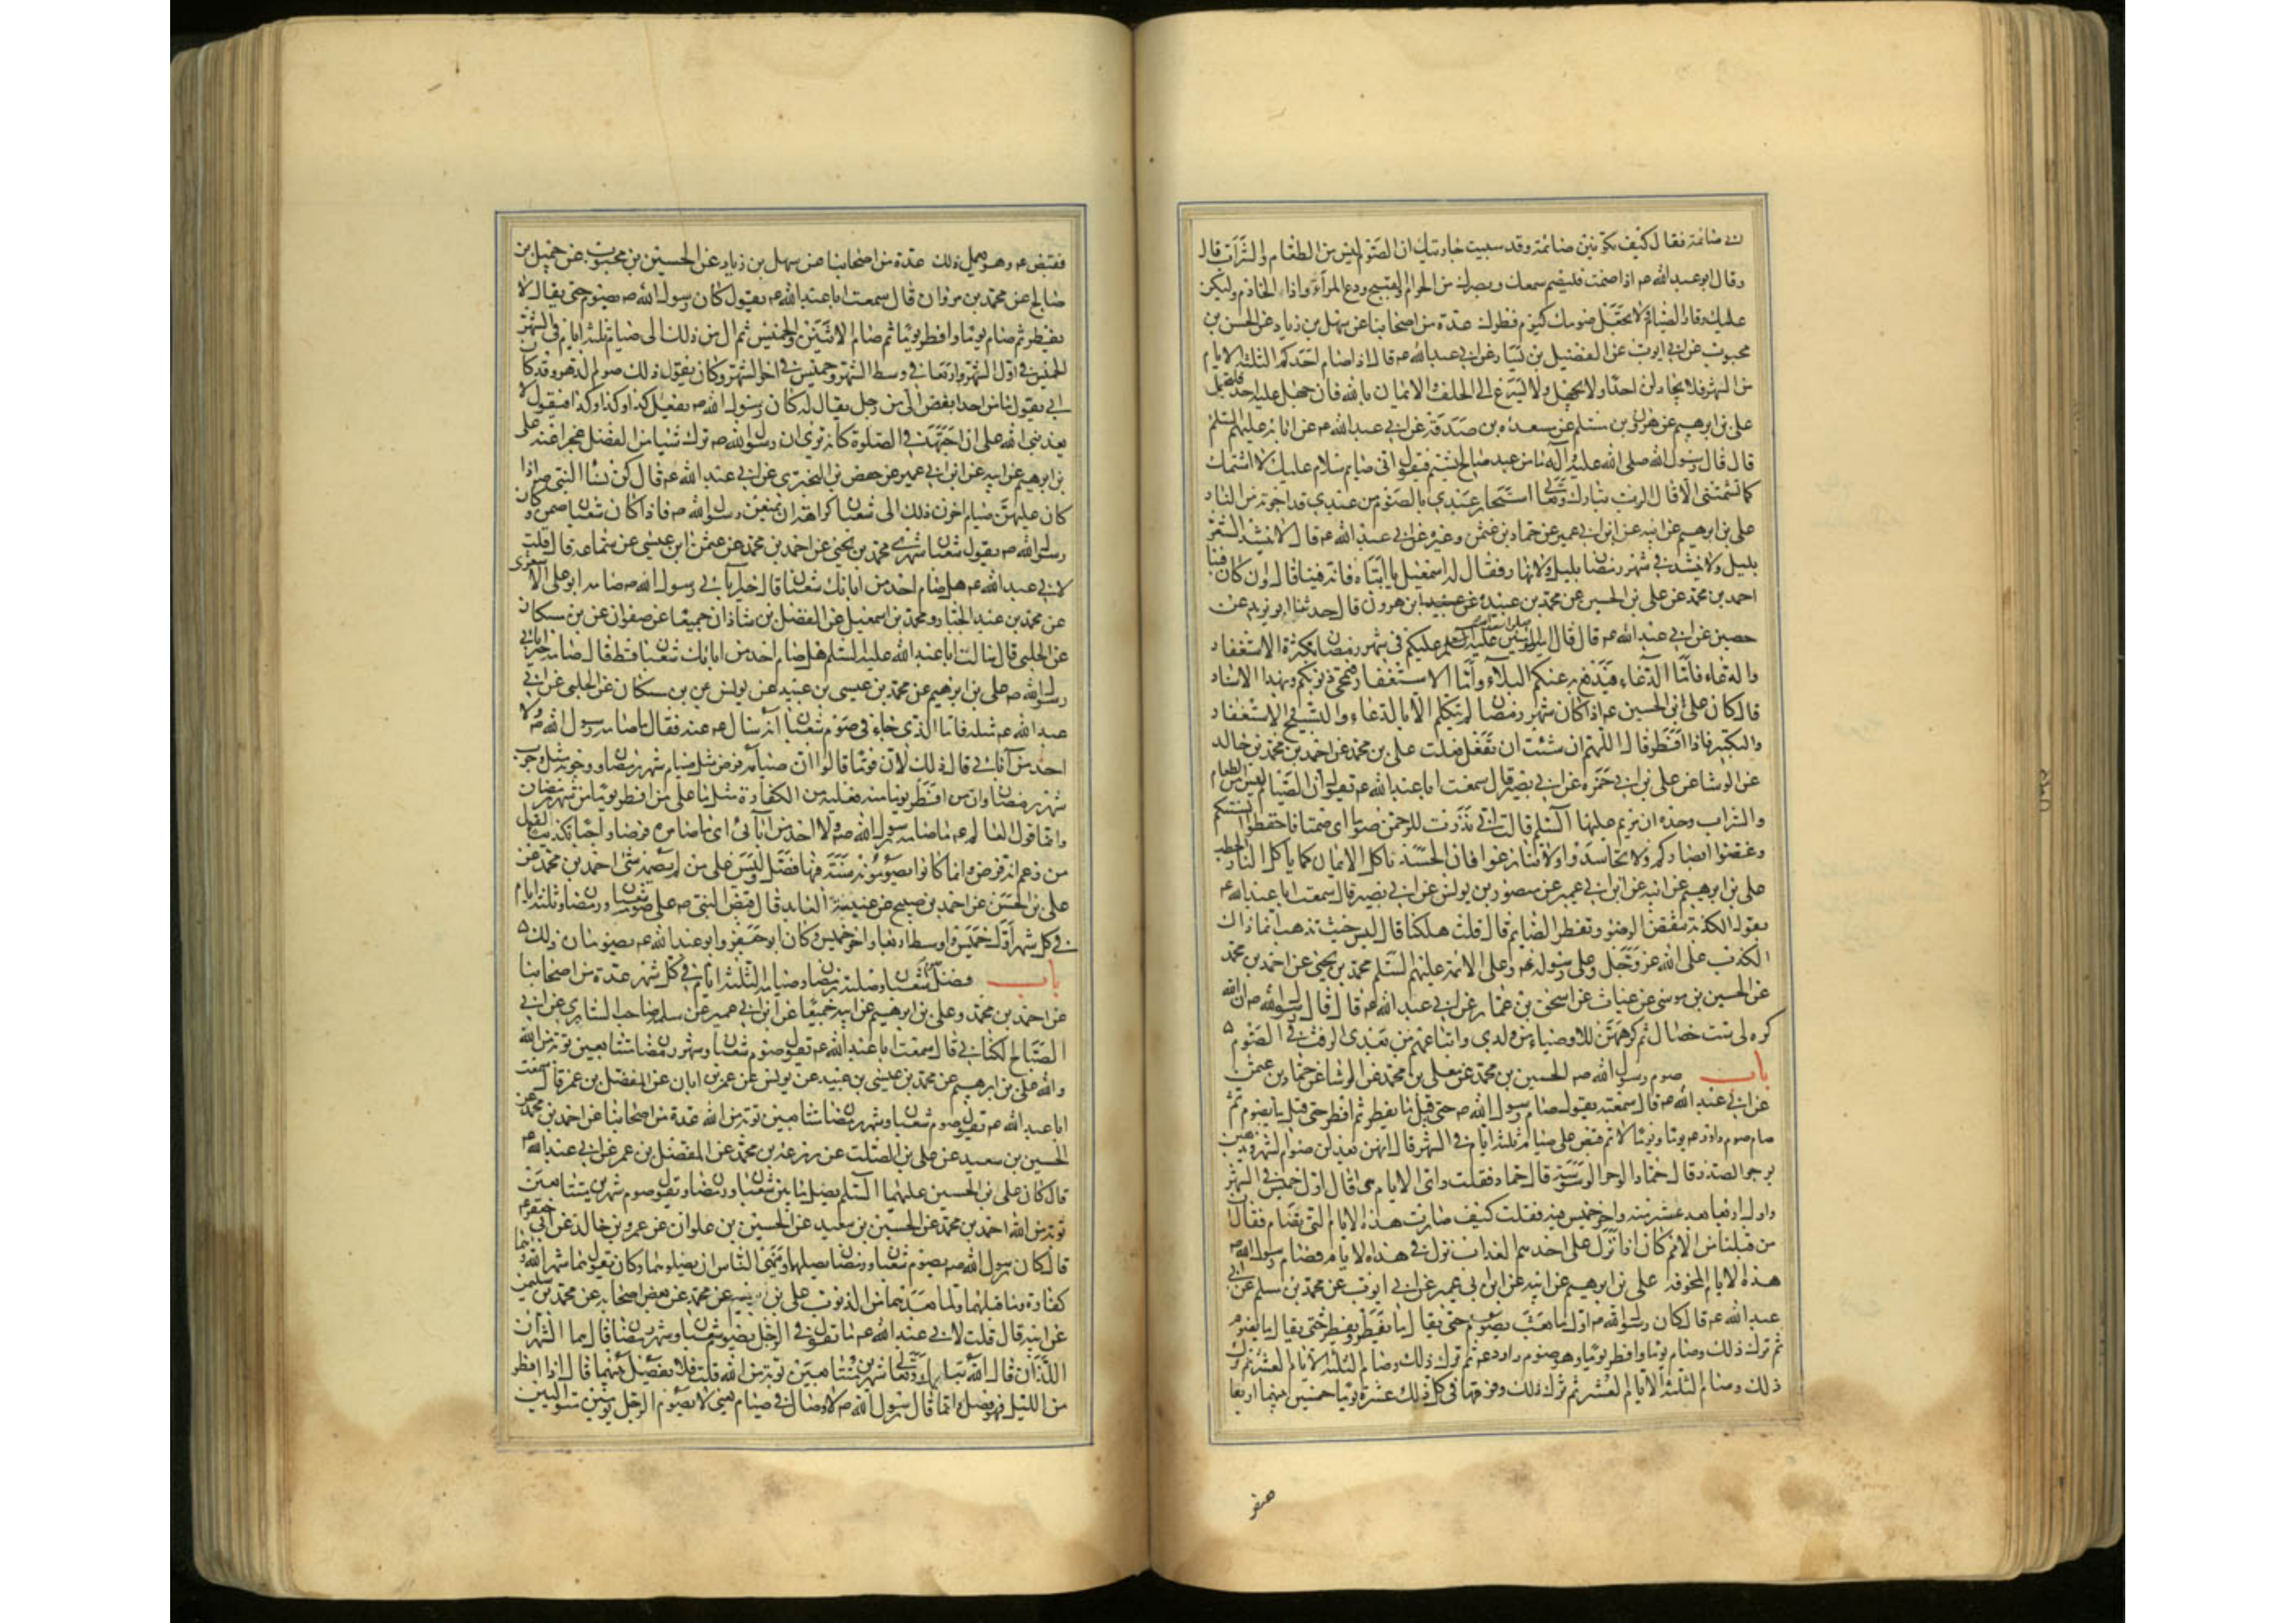 اني صائمة فقال كيف تكونين صائمة وقد سببت جاريتك ان الصوم ليس من الطعام والشراب قال
وقال ابو عبد الله ع اذا صمت فليصم سمعك وبصرك من الحرام والقبيح ودع المراء واذا الخادم وليكن
عليك وقار الصيام ولا تجعل صومك كيوم فطرك عدة من اصحابنا عن سهل بن زياد عن الحسن بن
محبوب عن ابي ايوب عن الفضيل بن يسار عن ابي عبد الله ع قال اذا صام احدكم الثلثة الايام
من الشهر فلا يجادلن احدا ولا يجهل ولا يسرع الى الحلف والايمان بالله فان جهل عليه احد فليتحمل
علي بن ابرهيم عن هرون بن مسلم عن مسعدة بن صدقة عن ابي عبد الله ع عن ابائه عليهم السلم
قال قال رسول الله صلى الله عليه وآله ما من عبد صالح يشتم فيقول اني صايم سلام عليك لا اشتمك
كما تشتمني الا قال الرب تبارك وتعالى استجار عبدي بالصوم من عبدي قد اجرته من النار
علي بن ابرهيم عن ابيه عن ابن ابي عمير عن حماد بن عثمن وغيره عن ابي عبد الله ع قال لا ينشد الشعر
بليل ولا ينشد في شهر رمضان بليل ولا نهار فقال له اسمعيل يا ابتاه فانه فينا قال وان كان فينا
احمد بن محمد عن علي بن الحسين عن محمد بن عبيد عن عبيد بن هرون قال حدثنا ابو يزيد عن
حصين عن ابي عبد الله ع قال قال امير المؤمنين صلوات الله عليه عليكم في شهر رمضان بكثرة الاستغفار
والدعاء فاما الدعاء فيدفع عنكم البلاء واما الاستغفار فتمحى ذنوبكم وبهذا الاسناد
قال كان علي بن الحسين ع اذا كان شهر رمضان لم يتكلم الا بالدعاء والتسبيح والاستغفار
والتكبير فاذا افطر قال اللهم ان شئت ان تفعل فعلت علي بن محمد عن احمد بن محمد بن خالد
عن الوشا عن علي بن ابي حمزة عن ابي بصير قال سمعت ابا عبد الله ع يقول ان الصيام ليس من الطعام
والشراب وحده ان مريم عليها السلم قالت اني نذرت للرحمن صوما اي صمتا فاحفظوا السنتكم
وغضوا ابصاركم ولا تحاسدوا ولا تنازعوا فان الحسد ياكل الايمان كما ياكل النار الحطب
علي بن ابرهيم عن ابيه عن ابن ابي عمير عن منصور بن يونس عن ابي بصير قال سمعت ابا عبد الله ع
يقول الكذبة تنقض الوضوء وتفطر الصايم قال قلت هلكنا قال ليس حيث تذهب انما ذاك
الكذب على الله عز وجل وعلى رسوله ص وعلى الائمة عليهم السلم محمد بن يحيى عن احمد بن محمد
عن الحسين بن موسى عن غياث عن اسحق بن عمار عن ابي عبد الله ع قال قال رسول الله ص ان الله
كره لي ست خصال ثم كرهتهن للاوصياء من ولدي واتباعهم من بعدي الرفث في الصوم ه
باب صوم رسول الله ص الحسين بن محمد عن معلى بن محمد عن الوشا عن حماد بن عثمن
عن ابي عبد الله ع قال سمعته يقول صام رسول الله ص حتى قيل ما يفطر ثم افطر حتى قيل ما يصوم ثم
صام صوم داود ع يوما ويوما لا ثم قبض على صيام ثلثة ايام في الشهر قال انهن يعدلن صوم الشهر ويذهبن
بوحر الصدر وقال حماد الوحر الوسوسة قال حماد فقلت واي الايام هي قال اول خميس في الشهر
واول اربعا بعد عشر منه واخر خميس فيه فقلت كيف صارت هذه الايام التي تصام فقال
من قبلنا من الامم كان اذا نزل على احدهم العذاب نزل في هذه الايام فصام رسول الله ص
هذه الايام المخوفة علي بن ابرهيم عن ابيه عن ابن ابي عمير عن ابي ايوب عن محمد بن مسلم عن ابي
عبد الله ع قال كان رسول الله ص اول ما بعث يصوم حتى يقال ما يفطر ويفطر حتى يقال ما يصوم
ثم ترك ذلك وصام يوما وافطر يوما وهو صوم داود ع ثم ترك ذلك وصام الثلثة الايام الغر ثم ترك
ذلك وصام الثلثة الايام الغر ثم ترك ذلك وفرقها في كل عشرة يوما خميسين بينهما اربعا
فقبض ع وهو يعمل ذلك عدة من اصحابنا عن سهل بن زياد عن الحسين بن محبوب عن جميل بن
صالح عن محمد بن مروان قال سمعت ابا عبد الله ع يقول كان رسول الله ص يصوم حتى يقال لا
يفطر ثم صام يوما وافطر يوما ثم صام الاثنين والخميس ثم ال من ذلك الى صيام ثلثة ايام في الشهر
الخميس في اول الشهر واربعا في وسط الشهر وخميس في اخر الشهر وكان يقول ذلك صوم الدهر وقد كان
ابي يقول ما من احد ابغض الي من رجل يقال له كان رسول الله ص يفعل كذا وكذا وكذا فيقول لا
يعذبني الله على ان اجتهد في الصلوة كانه يرى ان رسول الله ص ترك شيئا من الفضل عجزا عنه علي
بن ابرهيم عن ابيه عن ابن ابي عمير عن حفص بن البختري عن ابي عبد الله ع قال كن نساء النبي ص اذا
كان عليهن صيام اخرن ذلك الى شعبان كراهة ان يمنعن رسول الله ص فاذا كان شعبان صمن وكان
رسول الله ص يقول شعبان شهري محمد بن يحيى عن احمد بن محمد عن عثمن ابن عيسى عن سماعة قال قلت
لابي عبد الله ع هل صام احد من ابائك شعبان قال خير آبائي رسول الله ص صامه ابو علي الاشعري
عن محمد بن عبد الجبار ومحمد بن اسمعيل عن الفضل بن شاذان جميعا عن صفوان عن بن مسكان
عن الحلبي قال سالت ابا عبد الله عليه السلم هل صام احد من ابائك شعبان قط قال صامه خير ابائي
رسول الله ص علي بن ابرهيم عن محمد بن عيسى بن عبيد عن يونس عن بن مسكان عن الحلبي عن ابي
عبد الله ع مثله فاما الذي جاء في صوم شعبان انه سال ع عنه فقال ما صامه رسول الله ص ولا
احد من آبائي قال ذلك لان قوما قالوا ان صيامه فرض مثل صيام شهر رمضان ووجوبه مثل وجوب
شهر رمضان وان من افطر يوما منه فعليه من الكفارة مثل ما على من افطر يوما من شهر رمضان
وانما قول العالم ع ما صامه رسول الله ص ولا احد من آبائي اي ما صاموه فرضا واجبا تكذيبا لقول
من زعم انه فرض وانما كانوا يصومونه سنة فيها فضل وليس على من لم يصمه شئ احمد بن محمد عن
علي بن الحسن عن احمد بن صبيح عن عنبسة العابد قال قبض النبي ص على صوم شعبان ورمضان وثلثة ايام
في كل شهر اول خميس واوسط اربعا واخر خميس وكان ابو جعفر وابو عبد الله ع يصومان ذلك ه
باب فضل صوم شعبان وصلته برمضان وصيام الثلثة ايام في كل شهر عدة من اصحابنا
عن احمد بن محمد وعلي بن ابرهيم عن ابيه جميعا عن ابن ابي عمير عن سلمة صاحب السابري عن ابي
الصباح الكناني قال سمعت ابا عبد الله ع يقول صوم شعبان وشهر رمضان متتابعين توبة من الله
والله علي بن ابرهيم عن محمد بن عيسى بن عبيد عن يونس عن عمرو بن ابان عن المفضل بن عمر قال سمعت
ابا عبد الله ع يقول صوم شعبان وشهر رمضان متتابعين توبة من الله عدة من اصحابنا عن احمد بن محمد عن
الحسين بن سعيد عن علي بن الصلت عن زرعة بن محمد عن المفضل بن عمر عن ابي عبد الله ع
قال كان علي بن الحسين عليهما السلم يصل ما بين شعبان ورمضان ويقول صوم شهرين متتابعين
توبة من الله احمد بن محمد عن الحسين بن سعيد عن الحسين بن علوان عن عمرو بن خالد عن ابي جعفر ع
قال كان رسول الله ص يصوم شعبان ورمضان يصلهما وينهى الناس ان يصلوهما وكان يقول هما شهرا الله وهما
كفارة وما قبلهما ولما بعدهما من الذنوب علي بن ابرهيم عن محمد عن بعض اصحابه عن محمد بن سليمن
عن ابيه قال قلت لابي عبد الله ع ما تقول في الرجل يصوم شعبان وشهر رمضان قال هما الشهران
اللذان قال الله تبارك وتعالى شهرين متتابعين توبة من الله قلت فلا يفصل بينهما قال اذا افطر
من الليل فهو فصل وانما قال رسول الله ص لا وصال في صيام يعني لا يصوم الرجل يومين متواليين